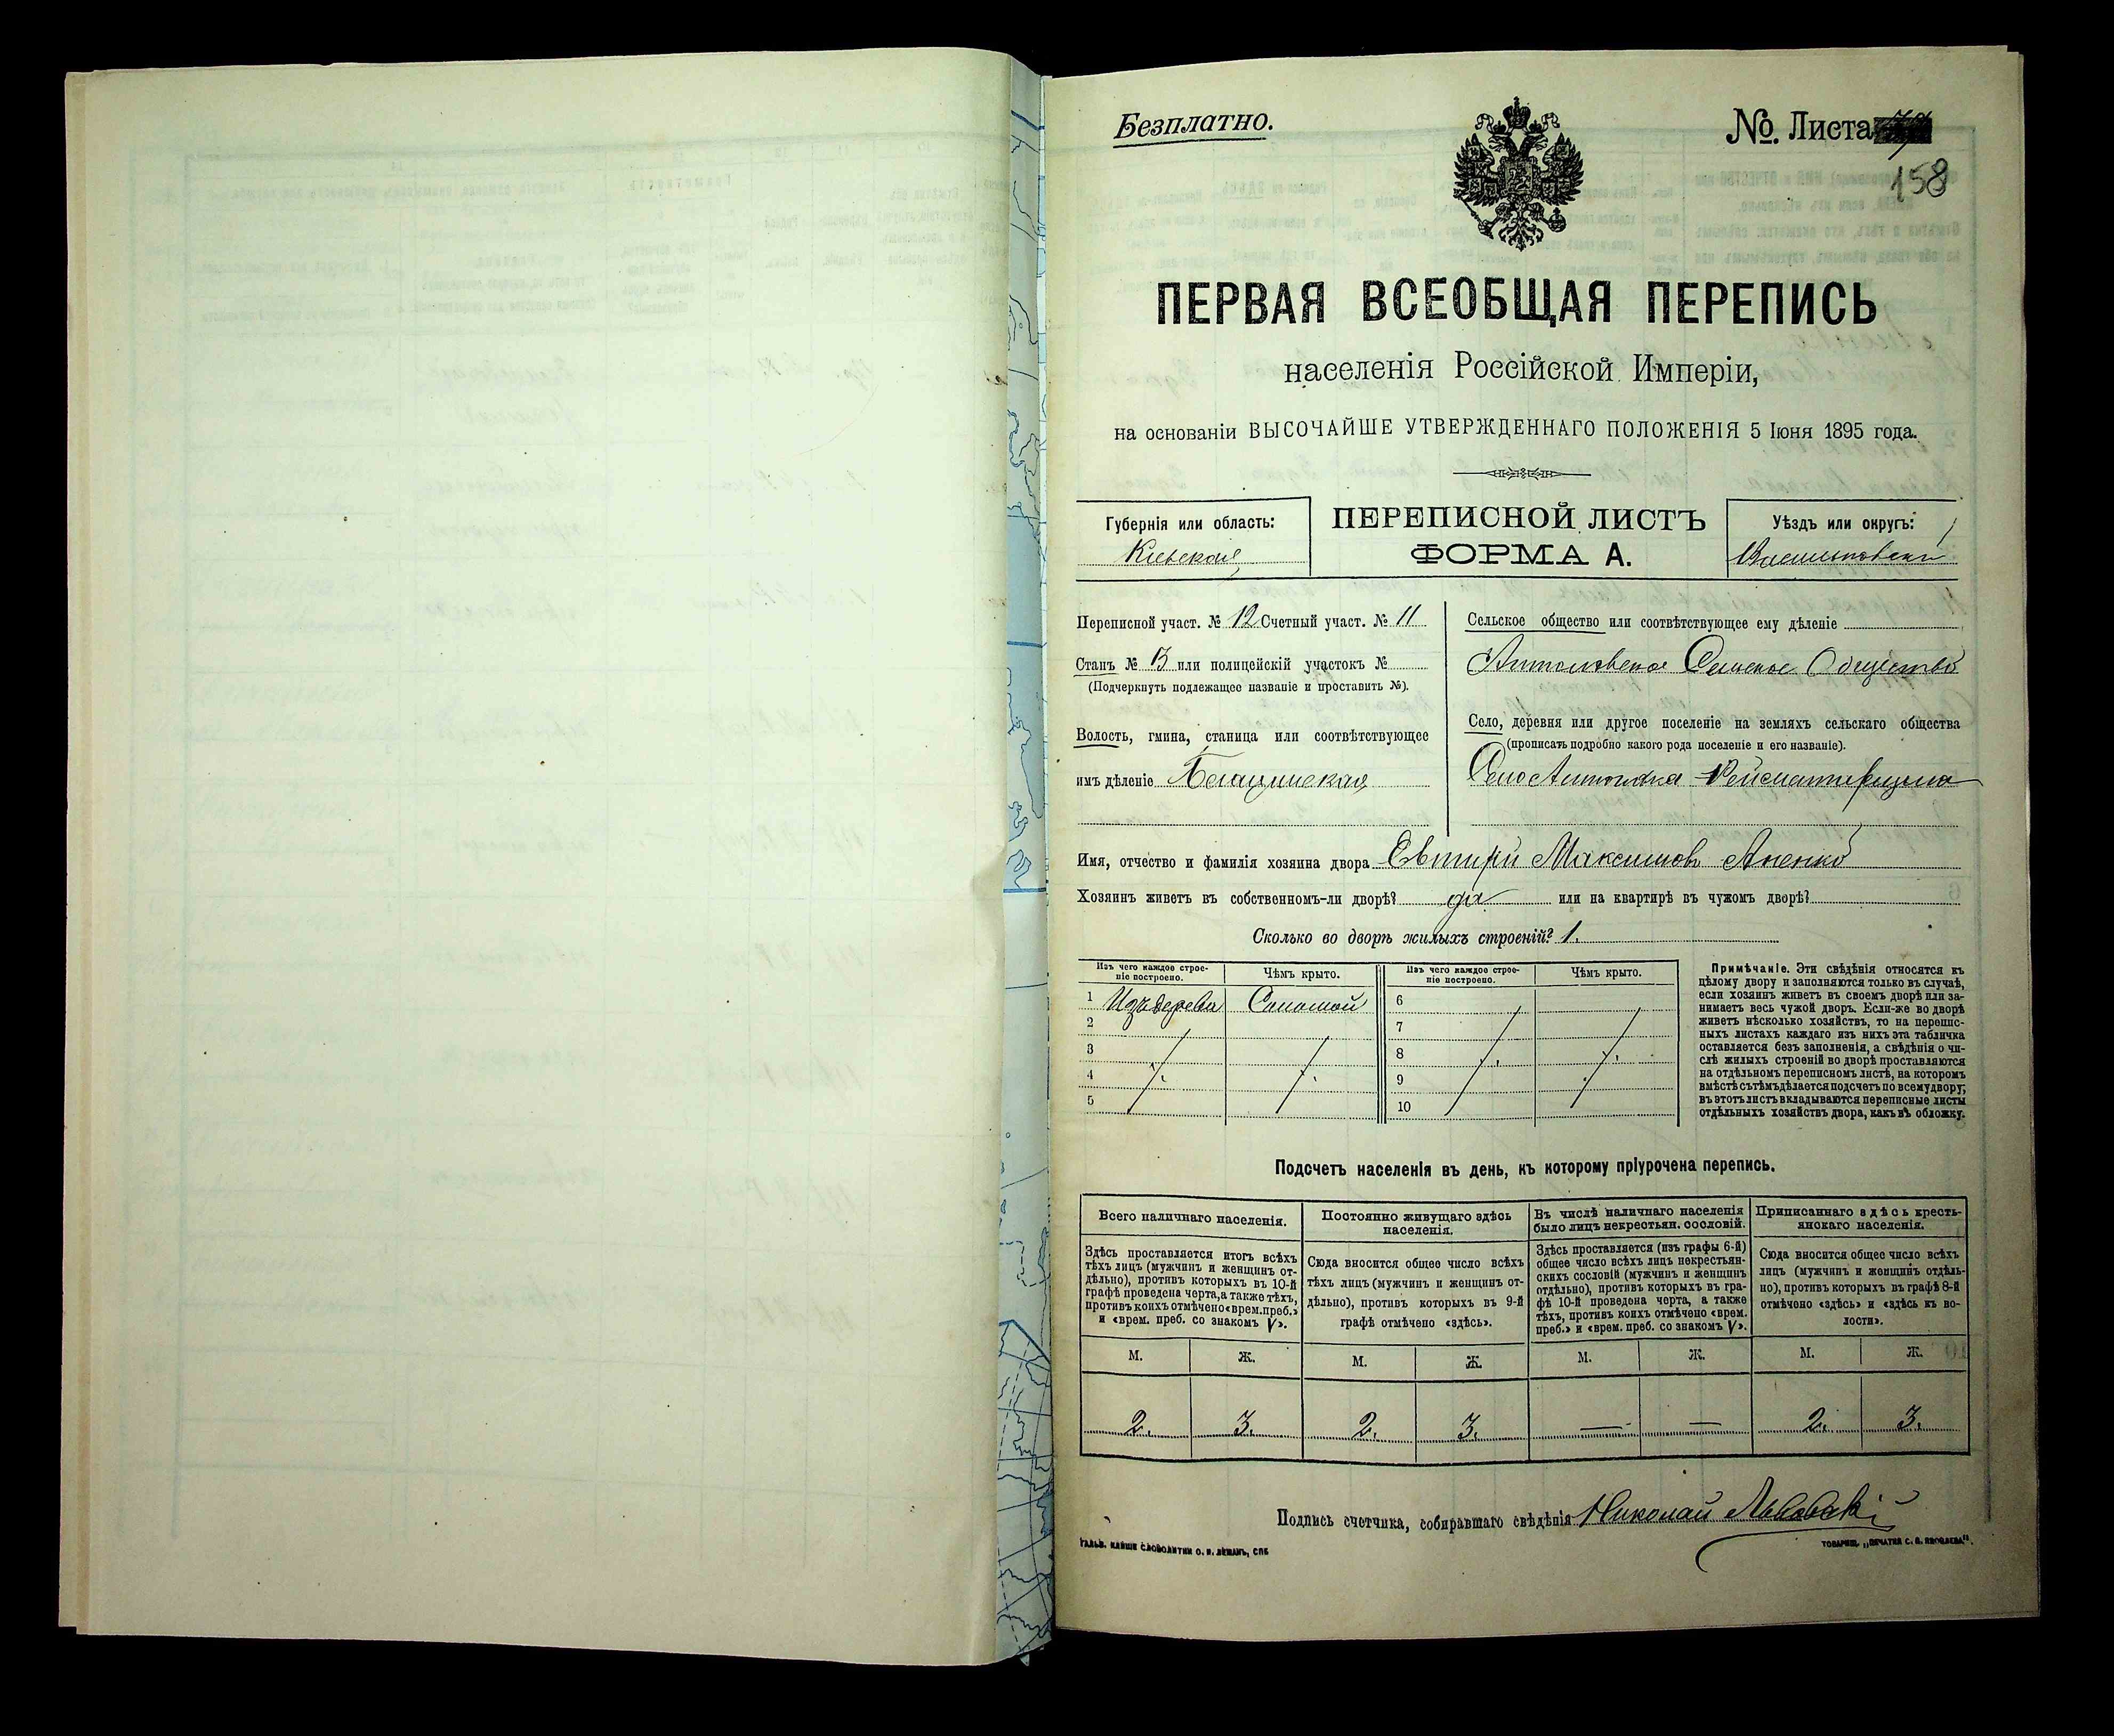 Безплатно.
№ Листа
158
ПЕРВАЯ ВСЕОБЩАЯ ПЕРЕПИСЬ
населенія Россійской Имперіи,
на основаніи ВЫСОЧАЙШЕ УТВЕРЖДЕННАГО ПОЛОЖЕНІЯ 5 Іюня 1895 года.
Губернія или область:
Кіевская
ПЕРЕПИСНОЙ ЛИСТЪ
ФОРМА А.
Уѣздъ или округъ:
Васильковскій
Переписной участ. № 12 Счетный участ. № 11
Станъ № 3 или полицейскій участокъ №
(Подчеркнуть подлежащее названіе и проставить №).
Волость, гмина, станица или соотвѣтствующее
имъ дѣленіе
Сельское общество или соотвѣтствующее ему дѣленіе
Антоновское Сельское Общество
Село, деревня или другое поселеніе на земляхъ сельскаго общества
(прописать подробно какого рода поселеніе и его названіе).
Село Антоновка
Имя, отчество и фамилія хозяина двора Евтихій Максимовъ
Хозяинъ живетъ въ собственномъ-ли дворѣ? да или на квартирѣ въ чужомъ дворѣ?
Сколько во дворѣ жилыхъ строеній? 1.
Изъ чего каждое строе-
ніе построено.
Чѣмъ крыто.
Изъ чего каждое строе-
ніе построено.
Чѣмъ крыто.
1 Изъ дерева Соломой 6
2 7
3 8
4 9
5 10
Примѣчаніе. Эти свѣдѣнія относятся къ
цѣлому двору и заполняются только въ случаѣ,
если хозяинъ живетъ въ своемъ дворѣ или за-
нимаетъ весь чужой дворъ. Если-же во дворѣ
живетъ нѣсколько хозяйствъ, то на перепис-
ныхъ листахъ каждаго изъ нихъ эта табличка
оставляется безъ заполненія, а свѣдѣнія о чи-
слѣ жилыхъ строеній во дворѣ проставляются
на отдѣльномъ переписномъ листѣ, на которомъ
вмѣстѣ съ тѣмъ дѣлается подсчетъ по всему двору;
въ этотъ листъ вкладываются переписные листы
отдѣльныхъ хозяйствъ двора, какъ въ обложку.
Подсчетъ населенія въ день, къ которому пріурочена перепись.
Всего наличнаго населенія.
Здѣсь проставляется итогъ всѣхъ
тѣхъ лицъ (мужчинъ и женщинъ от-
дѣльно), противъ которыхъ въ 10-й
графѣ проведена черта, а также тѣхъ,
противъ коихъ отмѣчено «врем. преб.»
и «врем. преб. со знакомъ V».
Постоянно живущаго здѣсь
населенія.
Сюда вносится общее число всѣхъ
тѣхъ лицъ (мужчинъ и женщинъ от-
дѣльно), противъ которыхъ въ 9-й
графѣ отмѣчено «здѣсь».
Въ числѣ наличнаго населенія
было лицъ некрестьян. сословій.
Здѣсь проставляется (изъ графы 6-й)
общее число всѣхъ лицъ некрестьян-
скихъ сословій (мужчинъ и женщинъ
отдѣльно), противъ которыхъ въ гра-
фѣ 10-й проведена черта, а также
тѣхъ, противъ коихъ отмѣчено «врем.
преб.» и «врем. преб. со знакомъ V».
Приписаннаго здѣсь кресть-
янскаго населенія.
Сюда вносится общее число всѣхъ
лицъ (мужчинъ и женщинъ отдѣль-
но), противъ которыхъ въ графѣ 8-й
отмѣчено «здѣсь» и «здѣсь къ во-
лости».
М. Ж. М. Ж. М. Ж. М. Ж.
2. 3. 2. 3. — — 2. 3.
Подпись счетчика, собиравшаго свѣдѣнія Николай Львовскій
ГАЛЬВ. КЛИШЕ СЛОВОЛИТНИ О. И. ЛЕМАНЪ, СПБ
ТОВАРИЩ. „ПЕЧАТНЯ С. П. ЯКОВЛЕВА“.